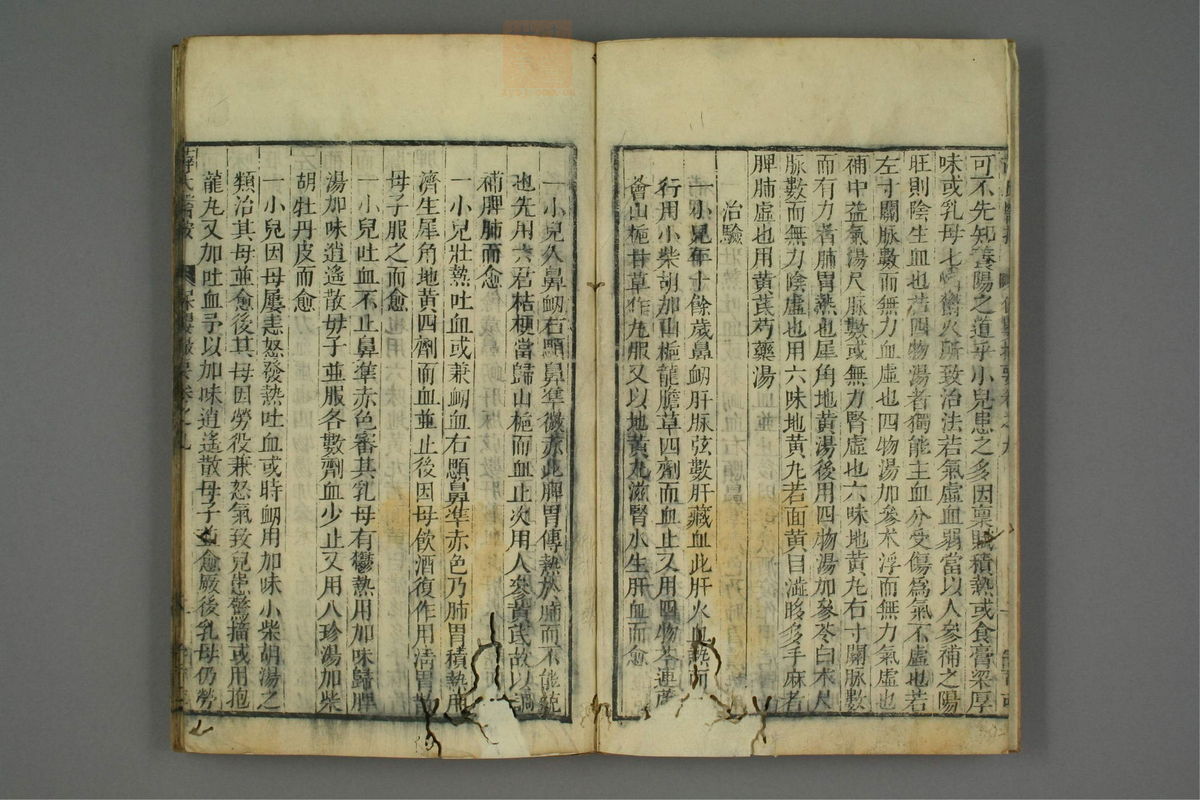 可不先知養陽之道乎小兒患之多因稟賦積熱或食膏粱厚
味或乳母七情鬱火所致治法若氣虛血弱當以人參補之陽
旺則陰生血也若四物湯者獨能主血分受傷爲氣不虛也若
左寸關脈數而無力血虛也四物湯加參朮浮而無力氣虛也
補中益氣湯尺脈數或無力腎虛也六味地黃丸右寸關脈數
而有力者肺胃熱也犀角地黃湯後用四物湯加參苓白朮尺
脈數而無力陰虛也用六味地黃丸若面黃目澁眵多手麻者
脾肺虛也用黃芪芍藥湯
治驗
一小兒年十餘歲鼻衂肝脈弦數肝藏血此肝火血熱而
行用小柴胡加山梔龍膽草四劑而血止又用四物芩連蘆
薈山梔甘草作丸服又以地黃丸滋腎水生肝血而愈
一小兒久鼻衂右顋鼻準微赤此脾胃傳熱於肺而不能統
也先用六君桔梗當歸山梔而血止次用人參黃芪故以調
補脾肺而愈
一小兒壯熱吐血或兼衂血右顋鼻準赤色乃肺胃積熱用
濟生犀角地黃四劑而血並止後因母飲酒復作用清胃散
母子服之而愈
一小兒吐血不止鼻準赤色審其乳母有鬱熱用加味歸脾
湯加味逍遙散母子並服各數劑血少止又用八珍湯加柴
胡牡丹皮而愈
一小兒因母屢恚怒發熱吐血或時衂用加味小柴胡湯之
類治其母並愈後其母因勞役兼怒氣致兒患驚搐或用抱
龍丸又加吐血予以加味逍遙散母子並愈厥後乳母仍勞
薛氏醫案 保嬰撮要卷之九